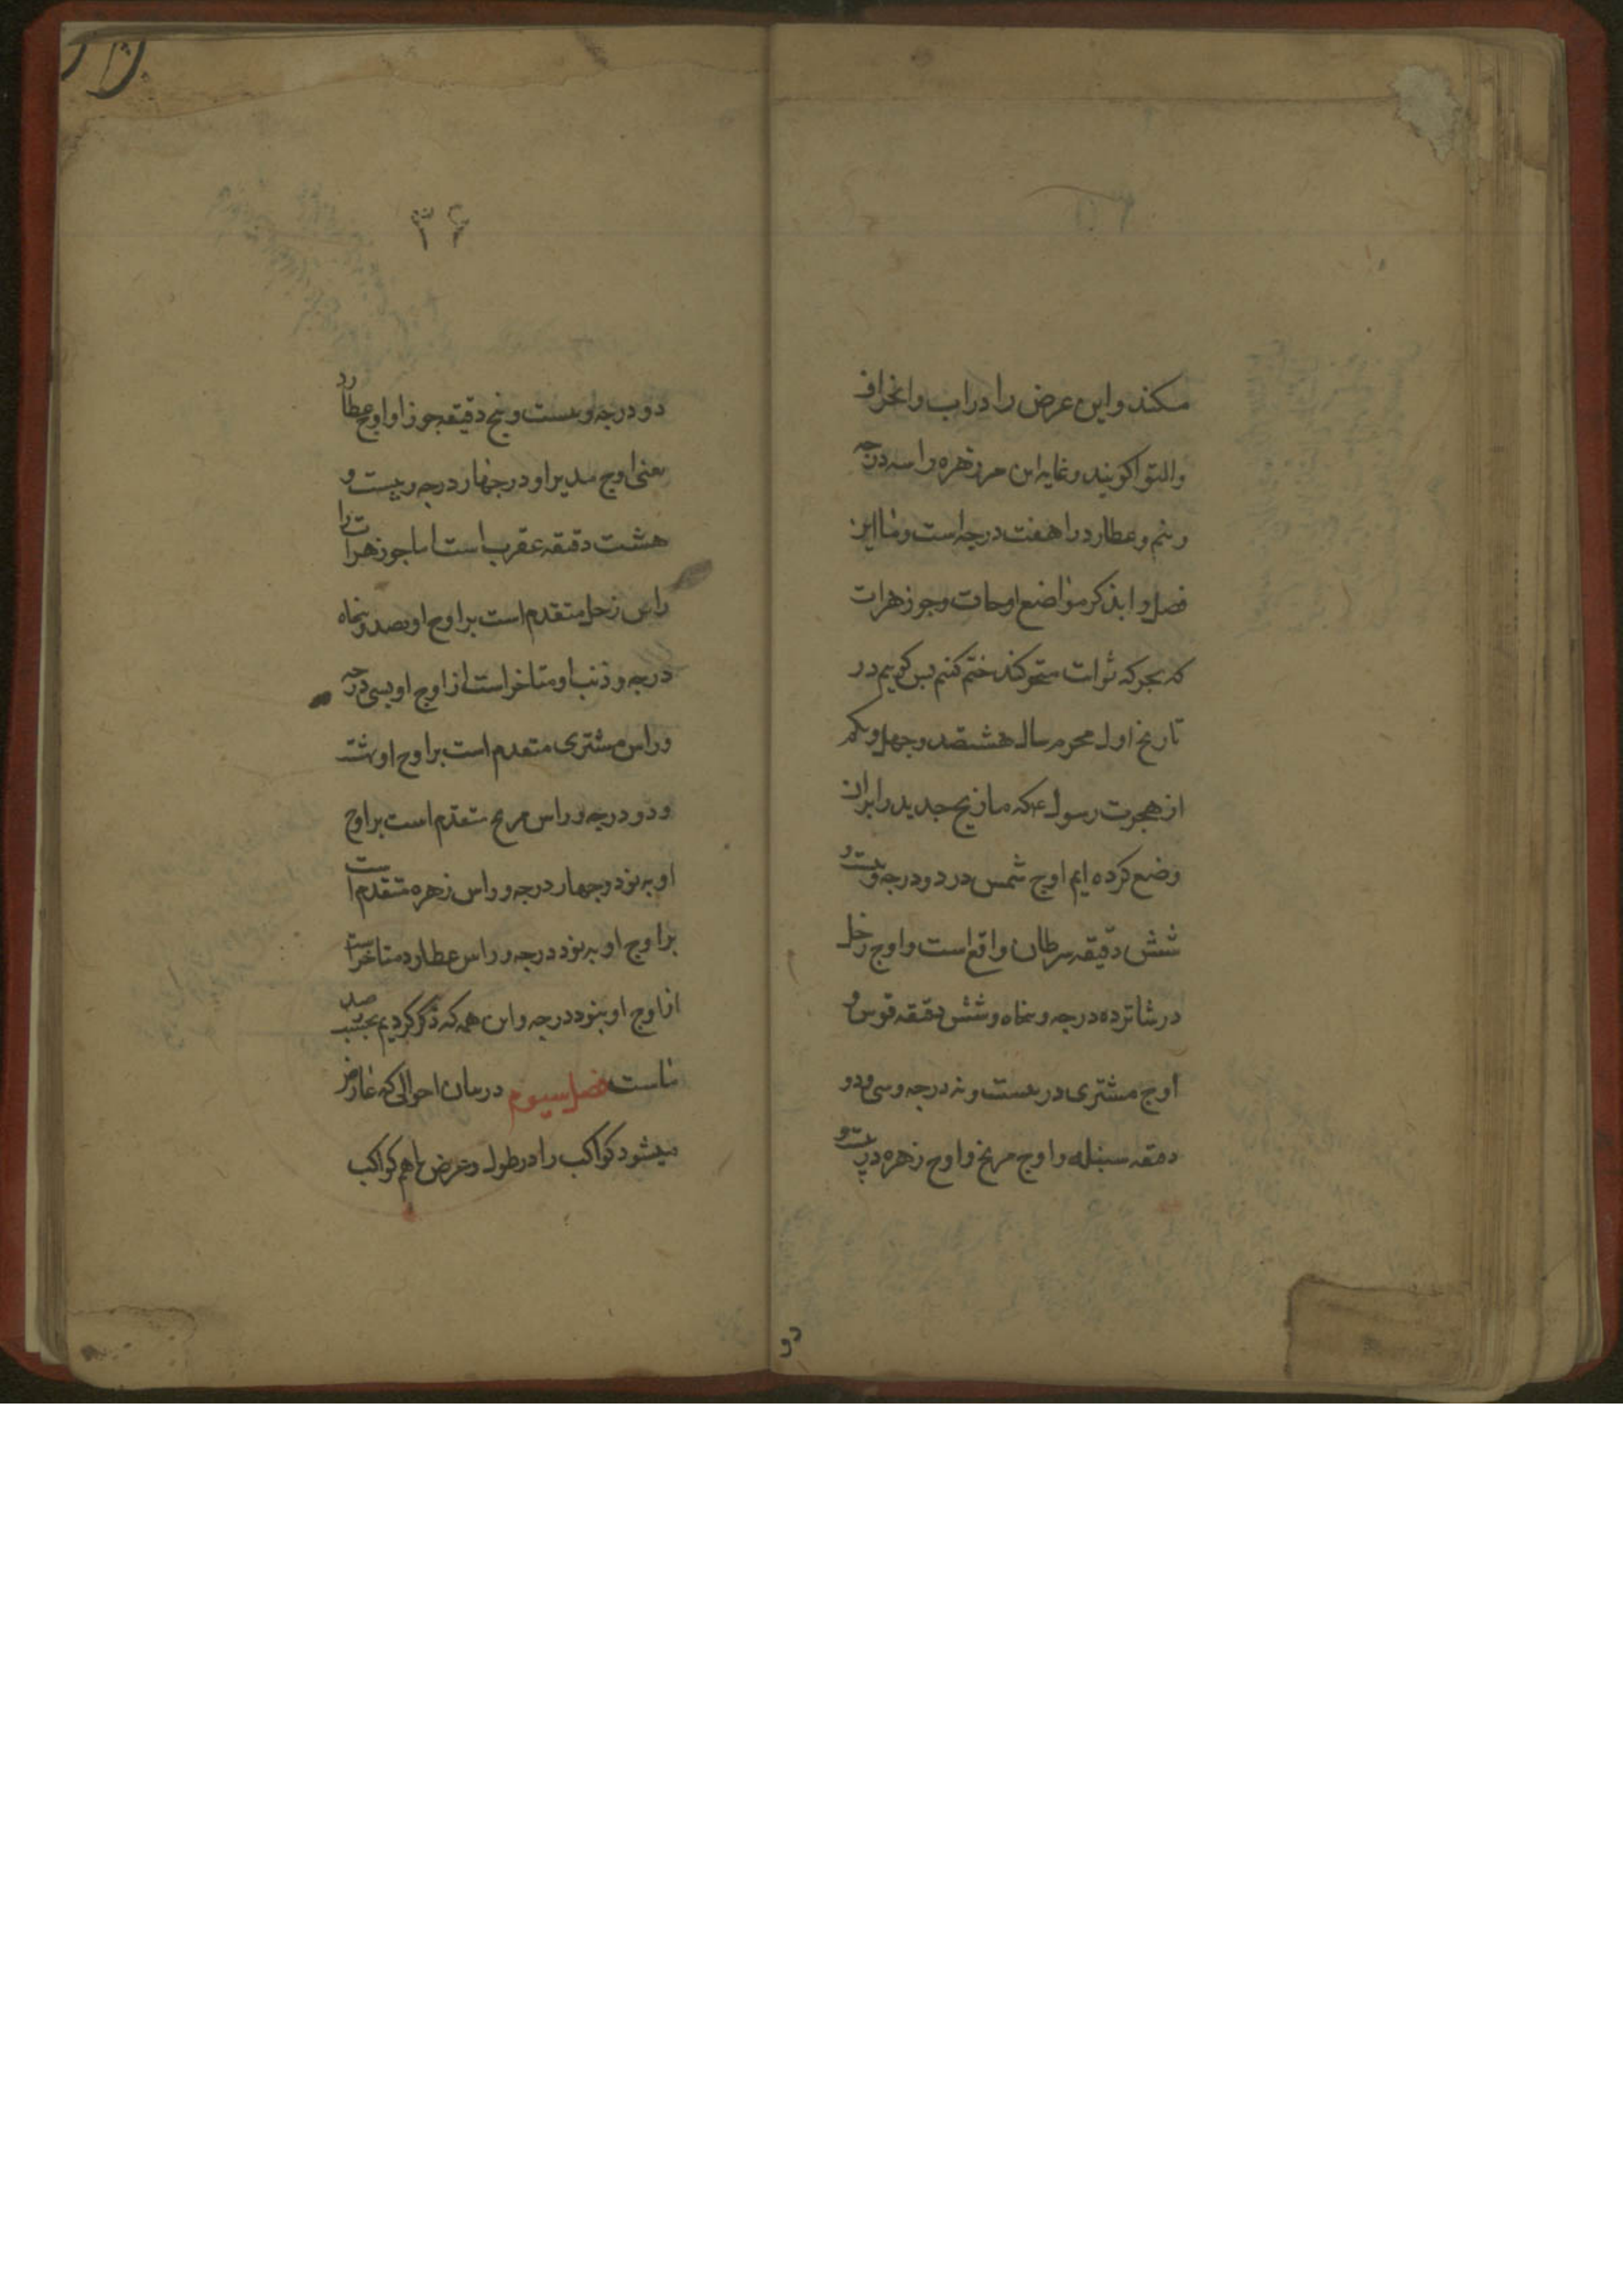 میکند و این عرض را وراب و انحراف
و التوا کویند و غایه این مر زهره را سه درجه
و نیم و عطارد را هفت درجه است و ما این
فصل را بذکر مواضع اوجات و جوزهرات
که بحرکه ثوابت متحرکند ختم کنیم بس کوییم در
تاریخ اول محرم سال هشتصد و چهل و یکم
از هجرت رسول ع که ما زیج جدید را بران
وضع کرده ایم اوج شمس در دو درجه و بیست و
شش دقیقه سرطان واقع است و اوج زحل
در شانزده درجه و پنجاه و شش دقیقه قوس و
اوج مشتری در بیست و نه درجه و سی و دو
دقیقه سنبله و اوج مریخ و اوج زهره در بیست و
دو
۳۶
دو درجه و بیست و پنج دقیقه جوزا و اوج عطارد
یعنی اوج مدیر او در چهار درجه و بیست و
هشت دقیقه عقرب است اما جوزهرات را
راس زحل متقدم است بر اوج او بصد و پنجاه
درجه و ذنب او متاخر است از اوج او بسی درجه
و راس مشتری متقدم است بر اوج او بهشتاد
و دو درجه و راس مریخ متقدم است بر اوج
او به نود و چهار درجه و راس زهره متقدم است
بر اوج او به نود درجه و راس عطارد متاخر است
از اوج او بنود درجه و این همه که ذکر کردیم بحسب رصد
ماست فصل سیوم در بیان احوالی که عارض
میشود کواکب را در طول و عرض باهم کواکب